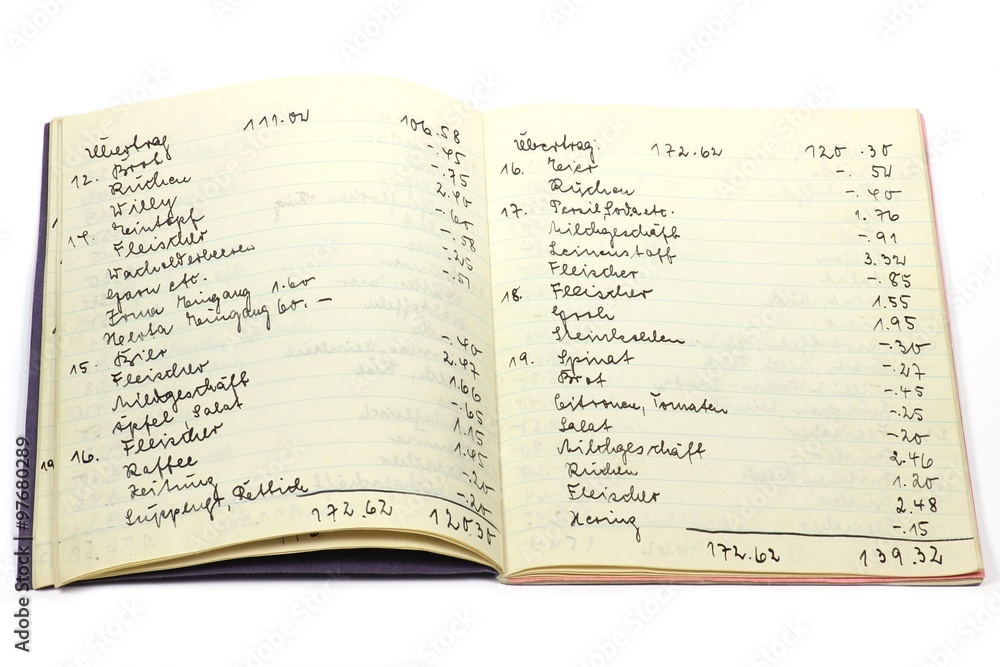 Übertrag 111.02 106.58
12. Brot -.45
Kuchen -.75
Willy 2.40
Eintopf -.60
14. Fleischer -.58
Wacholderbeeren -.25
Garn etc. -.51
Erna Eingang 1.60
Herta Eingang 60.–
15. Bier -.40
Fleischer 2.47
Milchgeschäft 1.66
Äpfel, Salat -.65
Fleischer 1.15
16. Kaffee 1.45
Zeitung -.20
Suppengr, Rettich -.20
172.62 120.30
19
Übertrag: 172.62 120.30
16. Eier -.54
Kuchen -.40
17. Persil, Soda etc. 1.76
Milchgeschäft -.91
Leinenstoff 3.32
Fleischer -.85
18. Fleischer 1.55
1.95
-.30
19. Spinat -.27
Brot -.45
Citronen, Tomaten -.25
Salat -20
Milchgeschäft 2.46
Kuchen 1.20
Fleischer 2.48
Hering -.15
172.62 139.32
Adobe Stock | #97680289